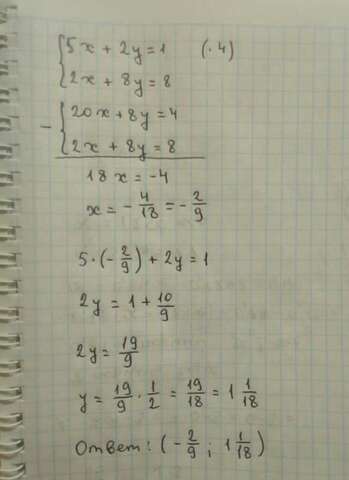 {5x + 2y = 1 (· 4)
{2x + 8y = 8
- {20x + 8y = 4
{2x + 8y = 8
18x = -4
x = - 4/18 = - 2/9
5 · (- 2/9) + 2y = 1
2y = 1 + 10/9
2y = 19/9
y = 19/9 · 1/2 = 19/18 = 1 1/18
Ответ: (- 2/9 ; 1 1/18)